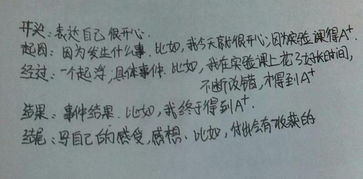 开头：表达自己很开心.
起因：因为发生什么事.比如,我今天就很开心,因为实验课得A⁺.
经过：一个起浮,具体事件.比如,我在实验课上花了好长时间,
不断改错,才得到A⁺
结果：事件结果.比如,我终于得到A⁺.
结尾：写自己的感受,感想.比如,付出会有收获的